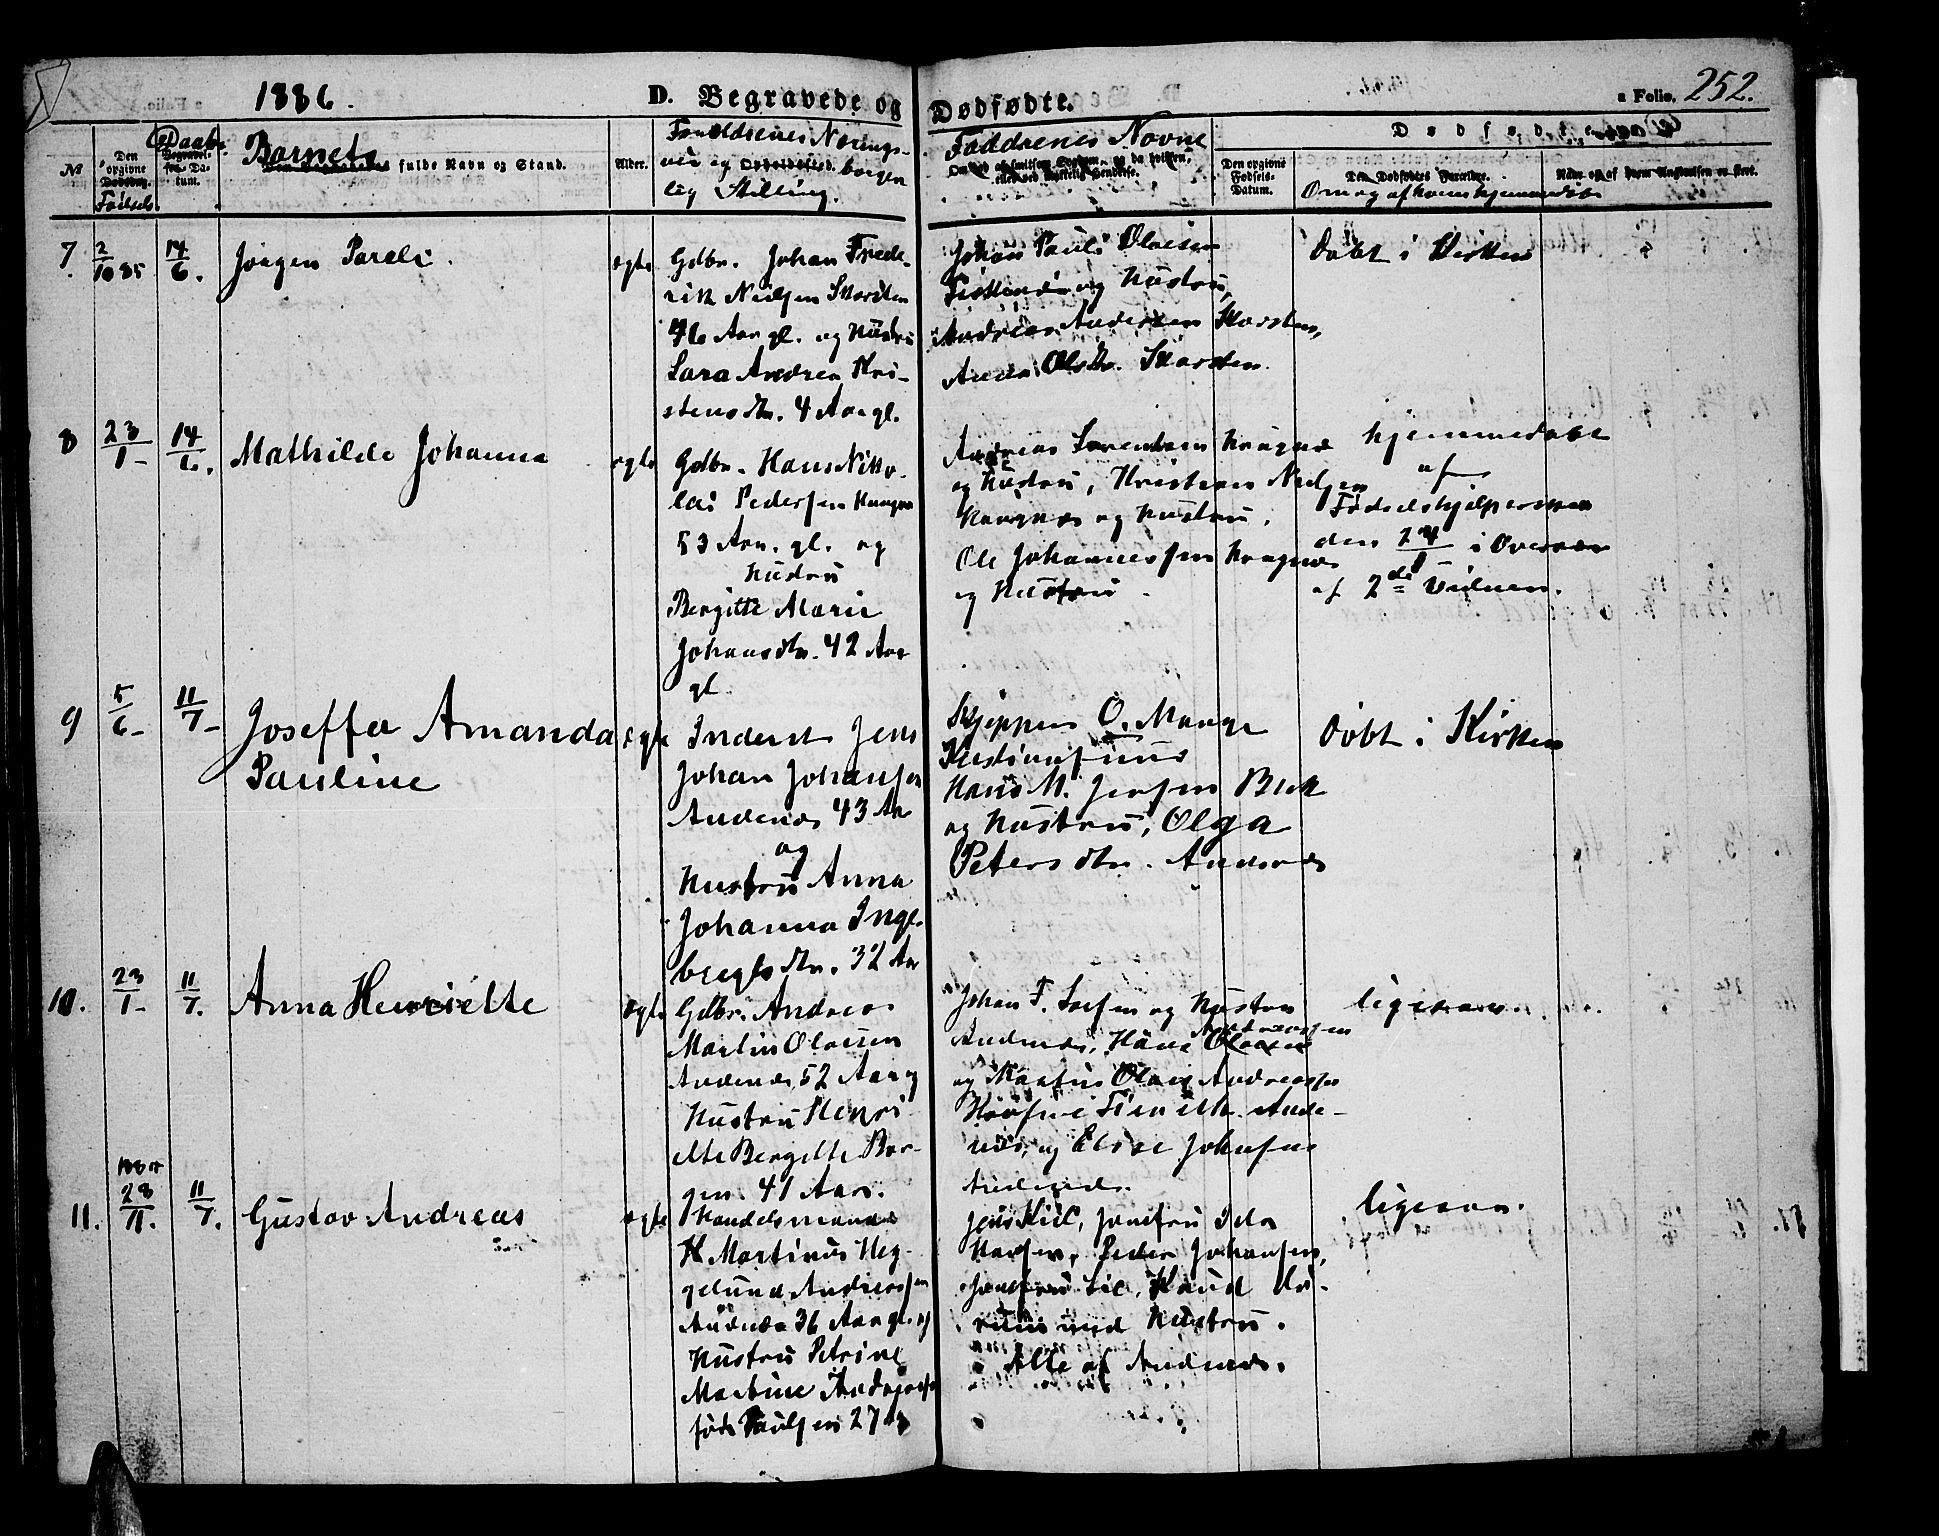 1886.
D. Begravede og
Dødfødte.
a Folio. 252.
№
Den opgivne Dødsdag.
Fødsels
Daabs
Begravelsens Datum.
Barnets
fulde Navn og Stand.
Alder.
Forældrenes Nærings-
vei og borger
lig Stilling.
Faddrenes Navne
Den opgivne Fødsels-Datum.
Dødfødte.
Den Dødfødtes Forældre.
Om og af hvem hjemmedøbt
7. 2/10 85 14/6. Jørgen Pareli. ægte
Gdbr. Johan Frede-
rik Nielsen Skarsten
46 Aar gl. og Hustru
Sara Andrea Kri-
stensdtr. 4 Aar gl.
Johan Pauli Olaisen
og Hustru,
Andreas Andersen Skarsten,
Anda Olsdtr. Skarsten.
Døbt i Kirken
8 23/1- 14/6. Mathilde Johanna ægte
Gdbr. Hans Niko-
lai Pedersen
53 Aar. gl. og
Hustru
Bergitte Marie
Johansdtr. 42 Aar
gl.
Andreas Sørensen
og Hustru, Kristian Nielsen
og Hustru,
Ole Johannessen
og Hustru.
hjemmedøbt
af
Fødselshjelpersken
den 24/1 i Overvær
af 2de Vidner.
9 5/6- 11/7- Joseffa Amanda ægte
Pauline
Inderst Jens
Johan Johansen
Andenes 43 Aar
og
Hustru Anna
Johanna Inge-
breigtsdtr. 32 Aar
Skipper O. Mange
Kristiansund
Hans M. Jensen Bleik
og Hustru, Olga
Petersdtr. Andenes
Døbt i Kirken
10. 23/1- 11/7. Anna Henriette ægte
Gdbr. Andreas
Martin Olaisen
Andenes, 52 Aar og
Hustru Henri-
ette Bergitte Bor-
gen. 41 Aar.
Johan F. og Hustru
Andreassen
Andenes, Hans Olaisen
og Martin Olaus Andreassen
Ande-
nes, og Elise Johnsen
Andenes.
ligesaa.
11. 1885 28/11. 11/7. Gustav Andreas ægte
Handelsmand
H Martinus Heg-
gelund Andreassen
Andenes 36 Aar gl. og
Hustru Petrine
Martine Andreassen
født Paulsen 27
Jens Kiil, Jomfru Ida
Hansen, Peder Johansen,
Jomfru Lie, Knud
med Hustru.
Alle af Andenes.
ligesaa.